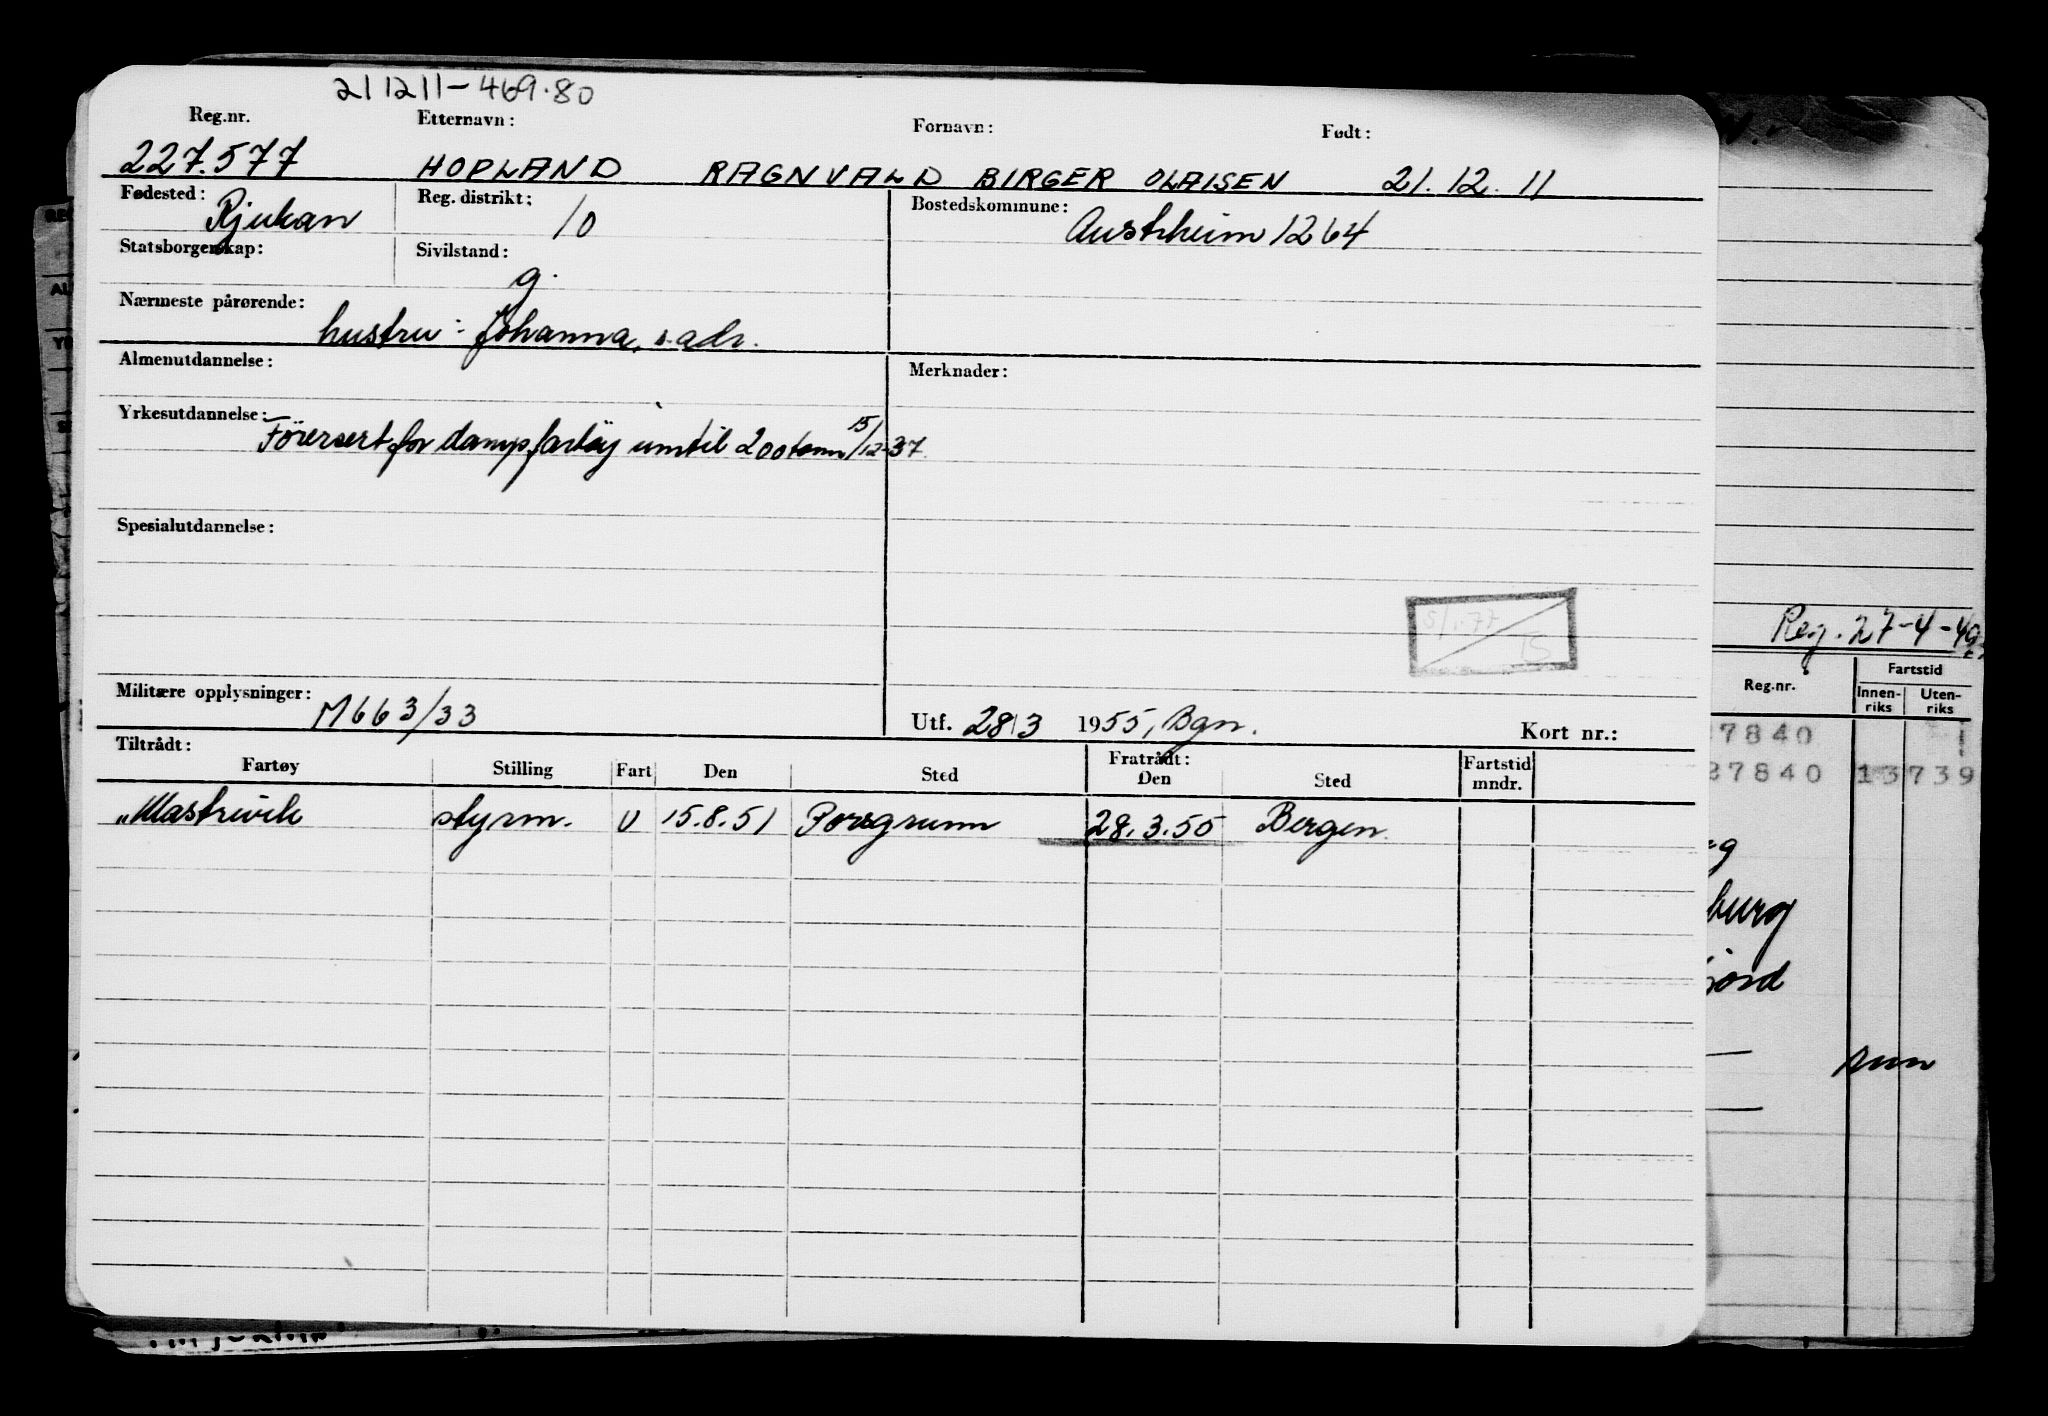 211211-469.80
Reg.nr. Etternavn: Fornavn: Født:
227.577 HOPLAND RAGNVALD BIRGER OLAISEN 21.12.11
Fødested: Rjukan Reg. distrikt: 10 Bostedskommune: Austrheim 1264
Statsborgerskap: Sivilstand: g.
Nærmeste pårørende: hustru: Johanna, s. adr.
Almenutdannelse: Merknader:
Yrkesutdannelse: Försersert for dampfartöy inntil 200 tonn 15/12-37
Spesialutdannelse:
5/1.77
TS
Reg. 27-4-49
Militære opplysninger: M663/33 Utf. 28/3 1955, Bgn. Kort nr.:
Tiltrådt: Fratrådt:
Fartøy Stilling Fart Den Sted Den Sted Fartstid mndr.
"Mastrevik styrm. U 15.8.51 Porsgrunn 28.3.55 Bergen
Reg.nr. Fartstid
Innen-riks Uten-riks
7840
27840 13739
burg